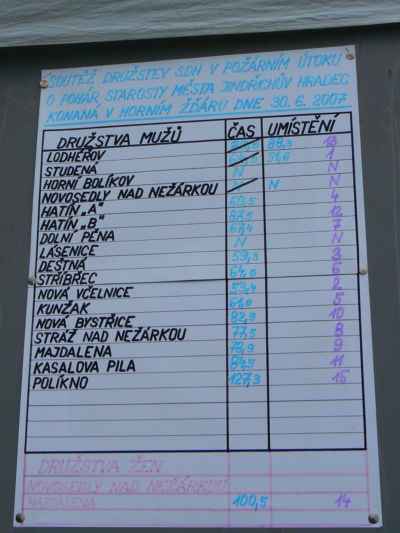 SOUTĚŽ DRUŽSTEV SDH V POŽÁRNÍM ÚTOKU
O POHÁR STAROSTY MĚSTA JINDŘICHŮV HRADEC
KONANÁ V HORNÍM ŽĎÁRU DNE 30.6.2007
DRUŽSTVA MUŽŮ ČAS UMÍSTĚNÍ
LODHÉŘOV 88,3 13
STUDENÁ 1
HORNÍ BOLÍKOV N N
NOVOSEDLY NAD NEŽÁRKOU N N
HATÍN „A“ 60,5 4
HATÍN „B“ 87,5 12
DOLNÍ PĚNA 67,4 7
LÁSENICE N N
DEŠTNÁ 59,3 3
STŘÍBŘEC 64,0 6
NOVÁ VČELNICE 59,4 2
KUNŽAK 61,0 5
NOVÁ BYSTŘICE 82,9 10
STRÁŽ NAD NEŽÁRKOU 77,5 8
MAJDALENA 78,9 9
KASALOVA PILA 84,5 11
POLÍKNO 127,3 15
DRUŽSTVA ŽEN
NOVOSEDLY NAD NEŽÁRKOU
MAJDALENA 100,5 14